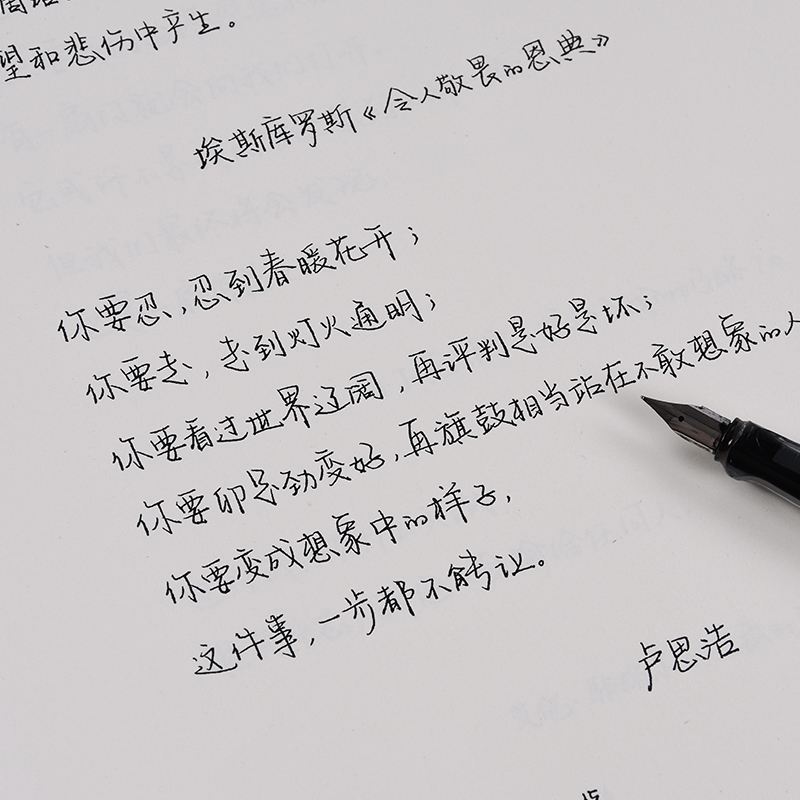 望和悲伤中产生。
埃斯库罗斯《令人敬畏的恩典》
你要忍,忍到春暖花开;
你要走,走到灯火通明;
你要看过世界辽阔,再评判是好是坏;
你要卯足劲变好,再旗鼓相当站在不敢想象的人
你要变成想象中的样子,
这件事,一步都不能让。
卢思浩